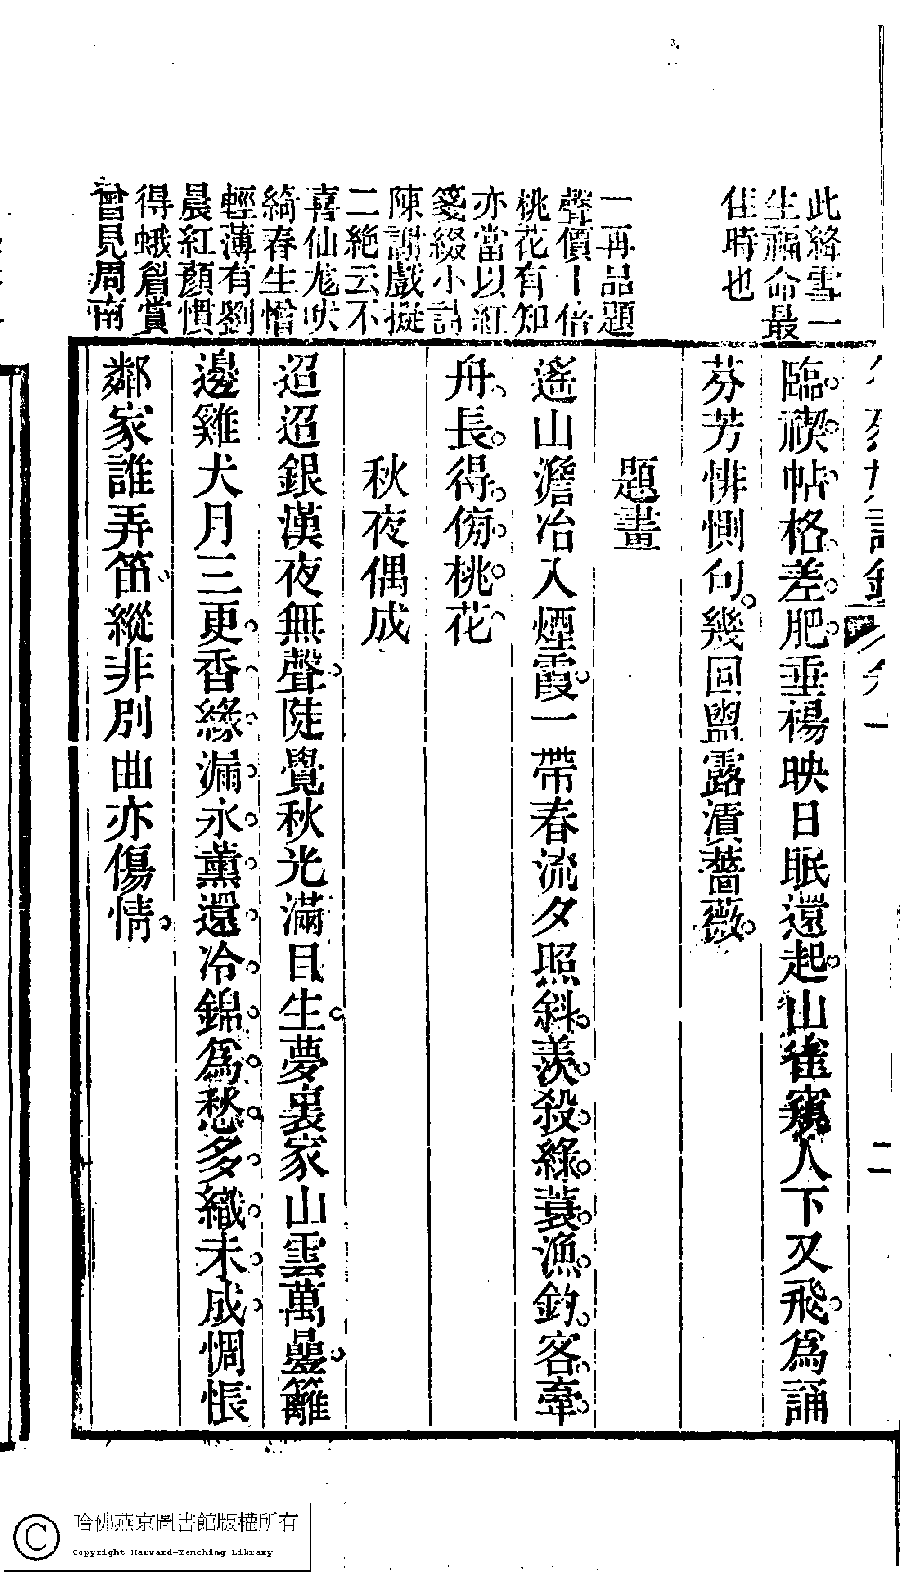 此絳雪一
生福命最
佳時也
一再品題
聲價十倍
桃花有知
亦當以紅
箋綴小詩
陳謝戲擬
二絕云不
喜仙尨吠
綺春生憎
輕薄有劉
晨紅顏慣
得蛾眉賞
曾見周南
二
臨禊帖格差肥垂楊映日眠還起山雀窺人下又飛爲誦
芬芳悱惻句幾回盥露漬薔薇
題畫
遙山澹冶入煙霞一帶春流夕照斜羨殺綠蓑漁釣客牽
舟長得傍桃花
秋夜偶成
迢迢銀漢夜無聲陡覺秋光滿目生夢裏家山雲萬疊籬
邊雞犬月三更香緣漏永薰還冷錦爲愁多織未成惆悵
鄰家誰弄笛縱非別曲亦傷情
哈佛燕京圖書館版權所有
Copyright Harvard-Yenching Library